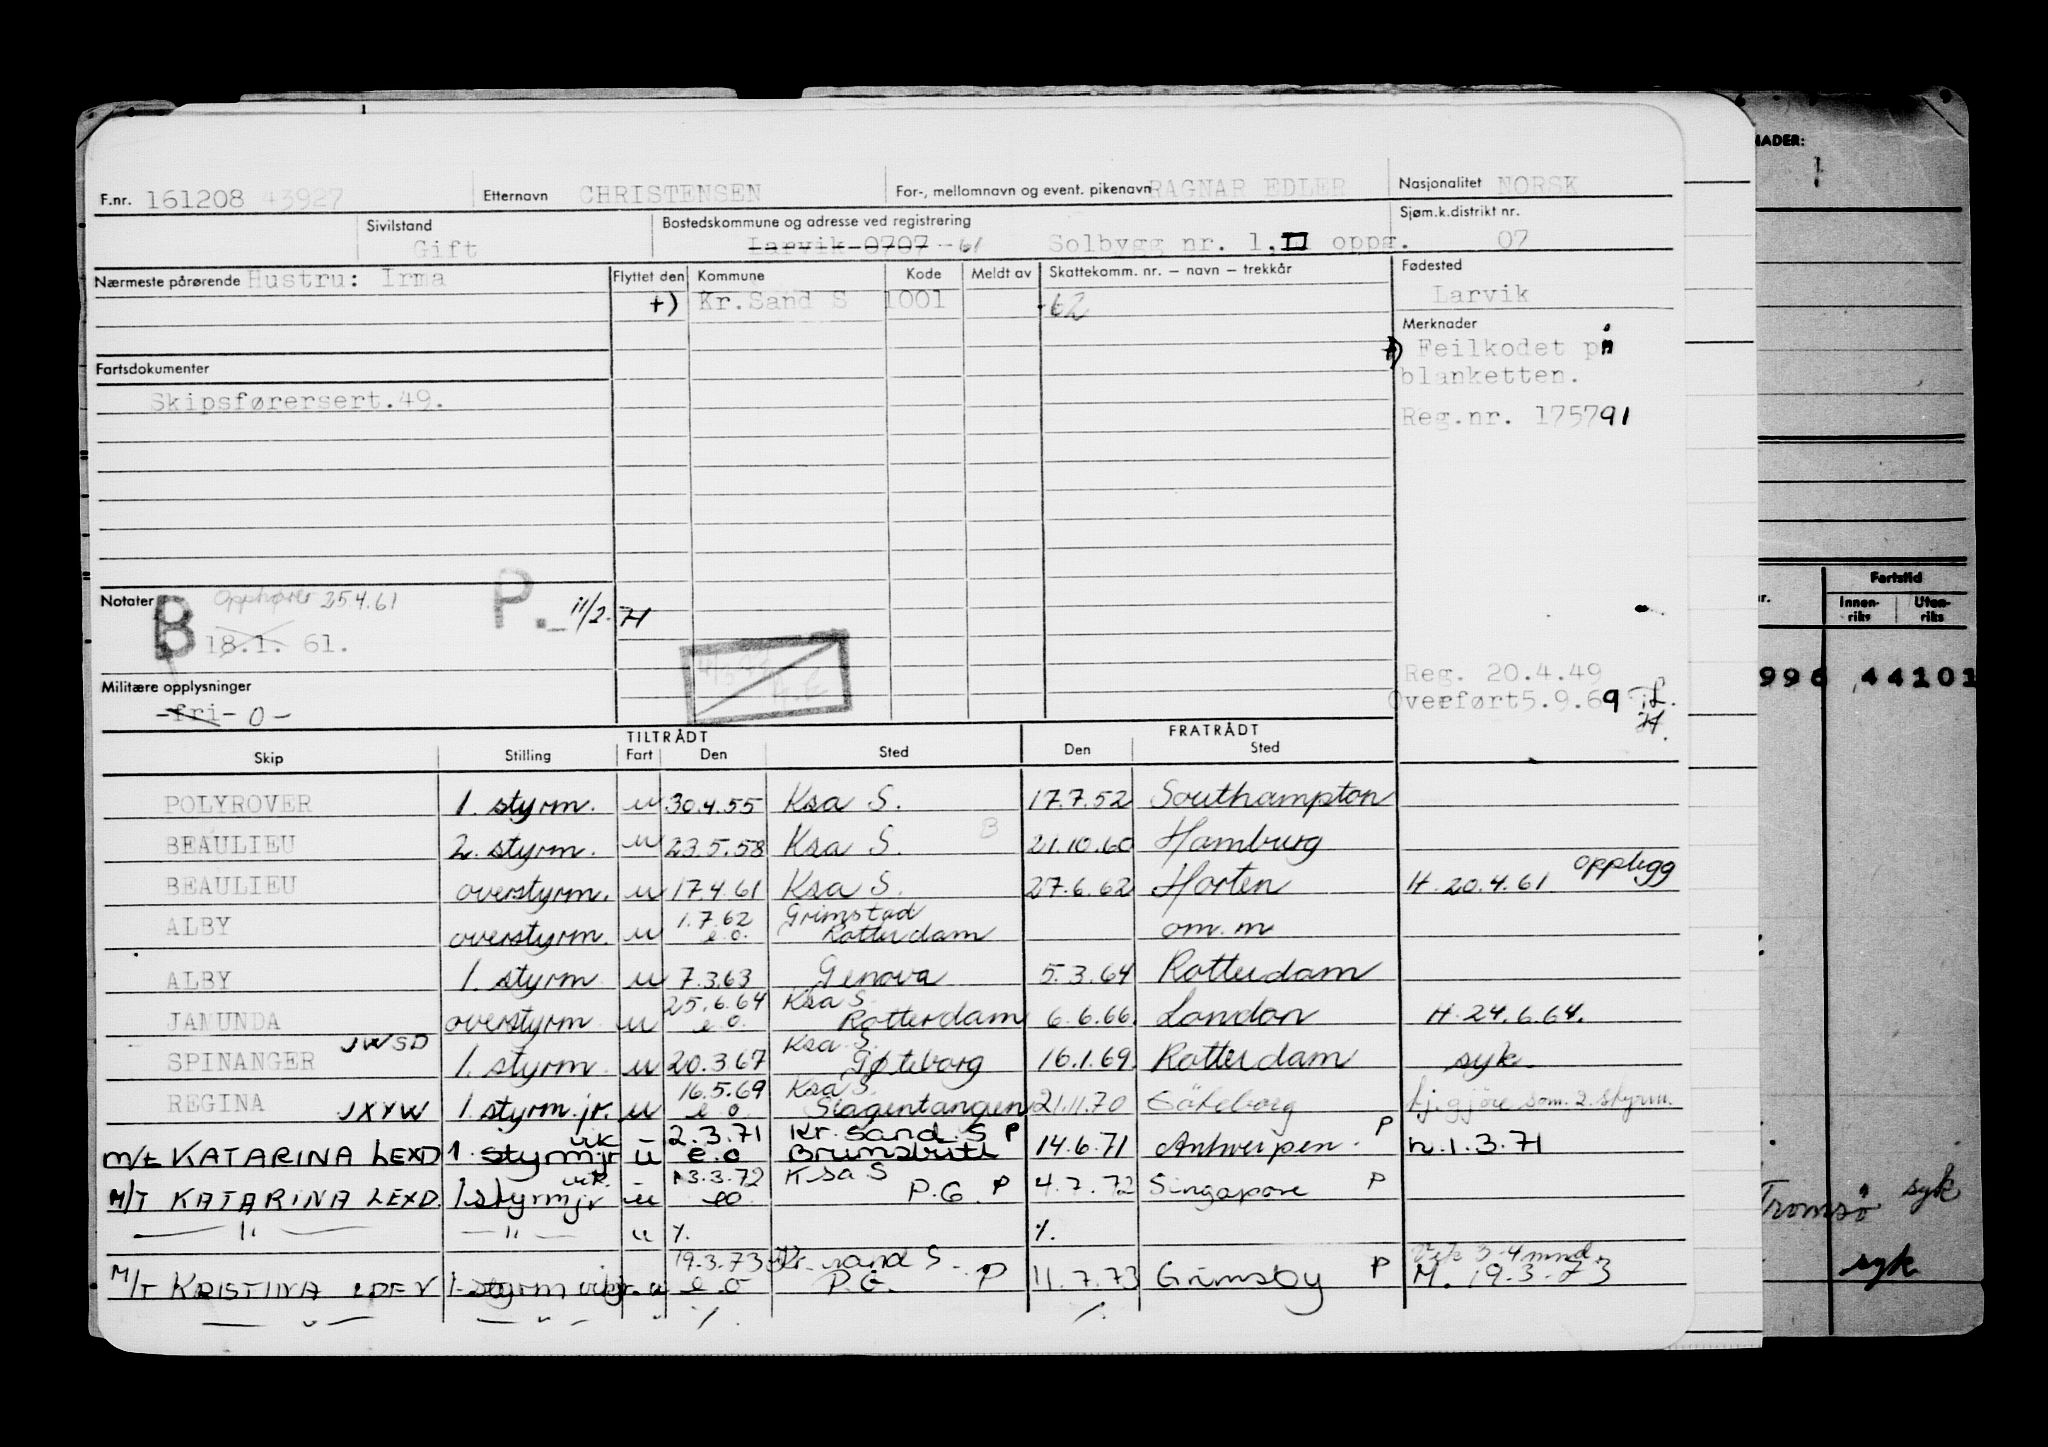 NADER:
F.nr. 161208 43927 Etternavn CHRISTENSEN For-, mellomnavn og event. pikenavn RAGNAR EDLER Nasjonalitet NORSK
Sivilstand Gift Bostedskommune og adresse ved registrering Larvik 0707 -61 Solbygg nr. 1, II oppg. Sjøm.k.distrikt nr. 07
Nærmeste pårørende Hustru: Irma Flyttet den Kommune Kode Meldt av Skattekomm. nr. – navn – trekkår Fødested Larvik
+) Kr.Sand S 1001 -62
Merknader
+) Feilkodet på
blanketten.
Fartsdokumenter
Skipsførersert.49.
Reg.nr. 175791
Notater B Opphører 25.4.61 P. 11/2-71
18.1. 61.
Fartstid
Innen-riks Uten-riks
996 44101
Militære opplysninger
-fri- 0 -
Reg. 20.4.49
Overført 5.9.69
TILTRÅDT FRATRÅDT
Skip Stilling Fart Den Sted Den Sted
POLYROVER 1. styrm. u 30.4.55 Ksa S. 17.7.52 Southampton
BEAULIEU 2. styrm. u 23.5.58 Ksa S. B 21.10.60 Hamburg
BEAULIEU overstyrm. u 17.4.61 Ksa S. 27.6.62 Horten H. 20.4.61 opplegg
ALBY overstyrm. u 1.7.62 e.o. Grimstad Rotterdam om.m
ALBY 1. styrm u 7.3.63 Genova 5.3.64 Rotterdam
JAMUNDA overstyrm u 25.6.64 e.o. Ksa S. Rotterdam 6.6.66. London H. 24.6.64.
SPINANGER JWSD 1. styrm. u 20.3.67 Ksa S. Gøteborg 16.1.69. Rotterdam syk.
REGINA JXYW 1. styrm.jr. u 16.5.69 e.o. Ksa S. Slagentangen 21.11.70 Göteborg tj.gjøre som 2. styrm.
M/T KATARINA LEXD 1. styrmjr vik u 2.3.71 e.o Kr.sand S P Brunsbüttel 14.6.71 Antwerpen. P h.1.3.71
M/T KATARINA LEXD. 1styrmjr vik. u 13.3.72 eo Ksa S P.G. P 4.7.72 Singapore P
— " — — " — u ٪. ٪.
M/T KRISTINA LDFV 1.styrm vikjr. u 19.3.73 e o Kr.sand S P.G. P 11.7.73 Grimsby P Vik 3-4 mnd. M. 19.3.73
— " — — " — " ٪. ٪.
Tromsø syk
syk